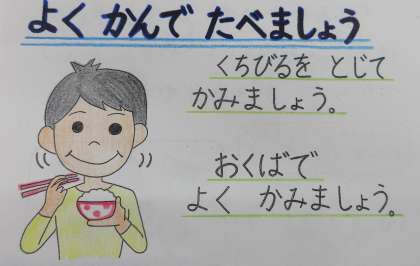 よく かんで たべましょう
くちびるを とじて
かみましょう。
おくばで
よく かみましょう。